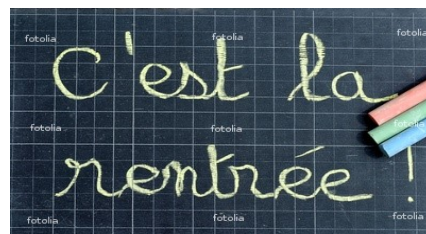 fotolia fotolia fotolia
C'est la
fotolia fotolia fotolia
rentrée !
fotolia fotolia fotolia